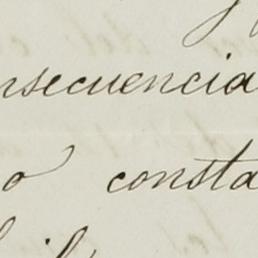 nsecuencia
o consta